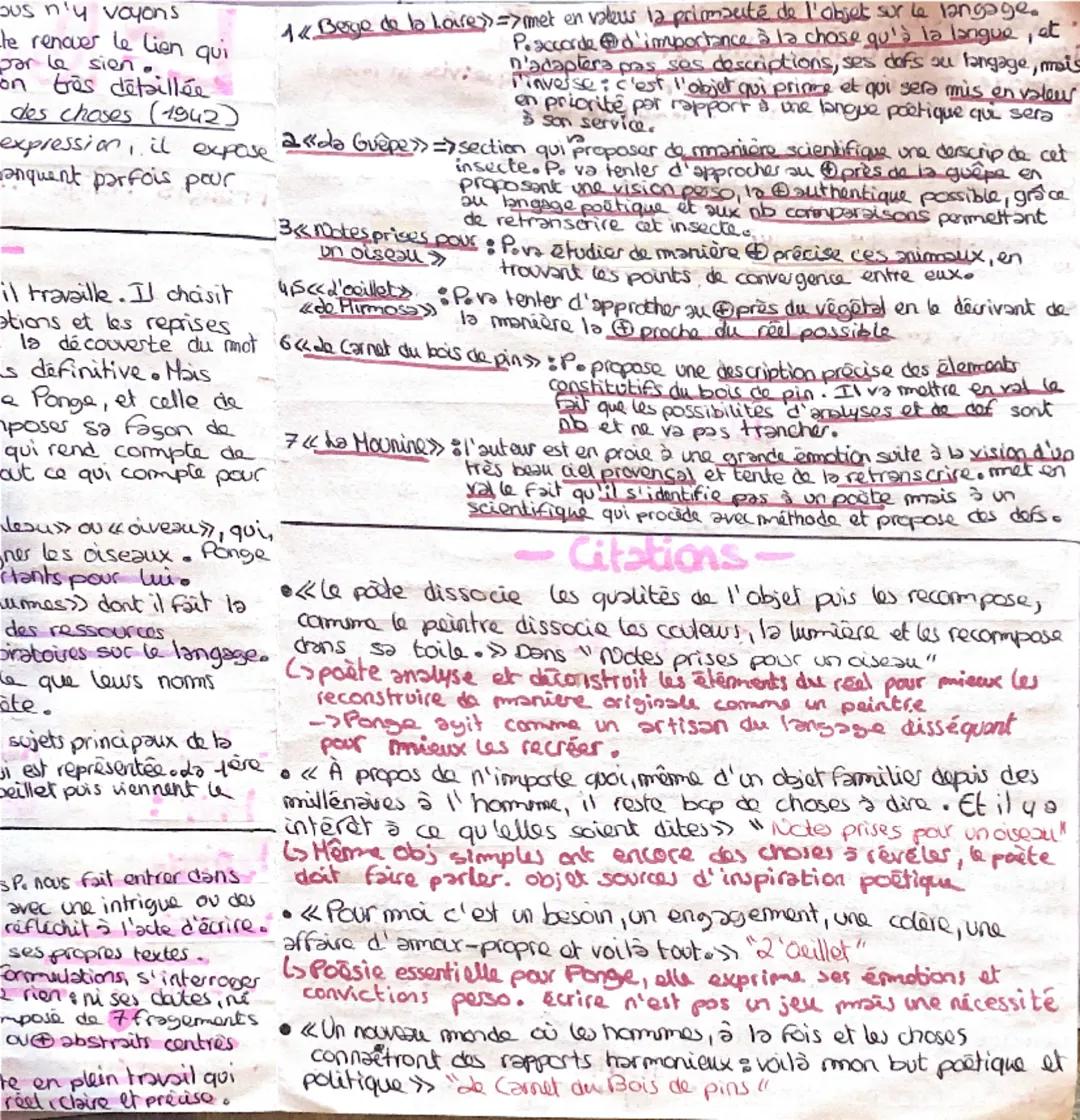 ous n'y voyons
le renouer le lien qui
par le sien.
on très détaillée
des choses (1942)
expression, il expose
anquent parfois pour
il travaille. Il choisit
ations et les reprises
la découverte du mot
s définitive. Mais
e Ponge, et celle de
mposer sa façon de
qui rend compte de
out ce qui compte pour
leau» ou «oiveau», qui,
ner les oiseaux. Ponge
rtants pour lui.
umes» dont il fait la
des ressources
oratoires sur le langage.
le que leurs noms
ate.
sujets principaux de la
ui est représentée. La 1ère
oeillet puis viennent le
s P. nous fait entrer dans
avec une intrigue ou des
réfléchit à l'acte d'écrire.
ses propres textes.
formulations, s'interroger
rien : ni ses dates, ni
mposé de 7 fragements
ou ⊕ abstraits centrés
te en plein travail qui
réel, claire et précise.
1 «Berge de la Loire» => met en valeur la primauté de l'objet sur le langage.
P. accorde ⊕ d'importance à la chose qu'à la langue, et
n'adaptera pas ses descriptions, ses defs au langage, mais
l'inverse : c'est l'objet qui prime et qui sera mis en valeur
en priorité par rapport à une langue poétique qui sera
à son service.
2 «La Guêpe» => section qui va proposer de manière scientifique une descrip de cet
insecte. P. va tenter d'approcher au ⊕ près de la guêpe en
proposant une vision perso, la ⊕ authentique possible, grâce
au langage poétique et aux nb comparaisons permettant
de retranscrire cet insecte.
3 «Notes prises pour un oiseau» : P. va étudier de manière ⊕ précise ces animaux, en
trouvant les points de convergence entre eux.
4,5 «L'oeillet» «Le Mimosa» : P. va tenter d'approcher au ⊕ près du végétal en le décrivant de
la manière la ⊕ proche du réel possible
6 «Le Carnet du bois de pin» : P. propose une description précise des élements
constitutifs du bois de pin. Il va mettre en val le
fait que les possibilités d'analyses et de def sont
nb et ne va pas trancher.
7 «La Mounine» : l'auteur est en proie à une grande émotion suite à la vision d'un
très beau ciel provençal et tente de la retranscrire. met en
val le fait qu'il s'identifie pas à un poète mais à un
scientifique qui procède avec méthode et propose des defs.
— Citations —
• «Le poète dissocie les qualités de l'objet puis les recompose,
comme le peintre dissocie les couleurs, la lumière et les recompose
dans sa toile.» Dans "Notes prises pour un oiseau"
↳ poète analyse et déconstruit les éléments du réel pour mieux les
reconstruire de manière originale comme un peintre
-> Ponge agit comme un artisan du langage disséquant
pour mieux les recréer.
• «À propos de n'importe quoi, même d'un objet familier depuis des
millénaires à l'homme, il reste bcp de choses à dire. Et il y a
intérêt à ce qu'elles soient dites» "Notes prises pour un oiseau"
↳ Même obj simples ont encore des choses à révéler, le poète
doit faire parler. objet sources d'inspiration poétique
• «Pour moi c'est un besoin, un engagement, une colère, une
affaire d'amour-propre et voilà tout.» "L'Oeillet"
↳ Poésie essentielle pour Ponge, elle exprime ses émotions et
convictions perso. écrire n'est pas un jeu mais une nécessité
• «Un nouveau monde où les hommes, à la fois et les choses
connaîtront des rapports harmonieux : voilà mon but poétique et
politique» "Le Carnet du Bois de pins"